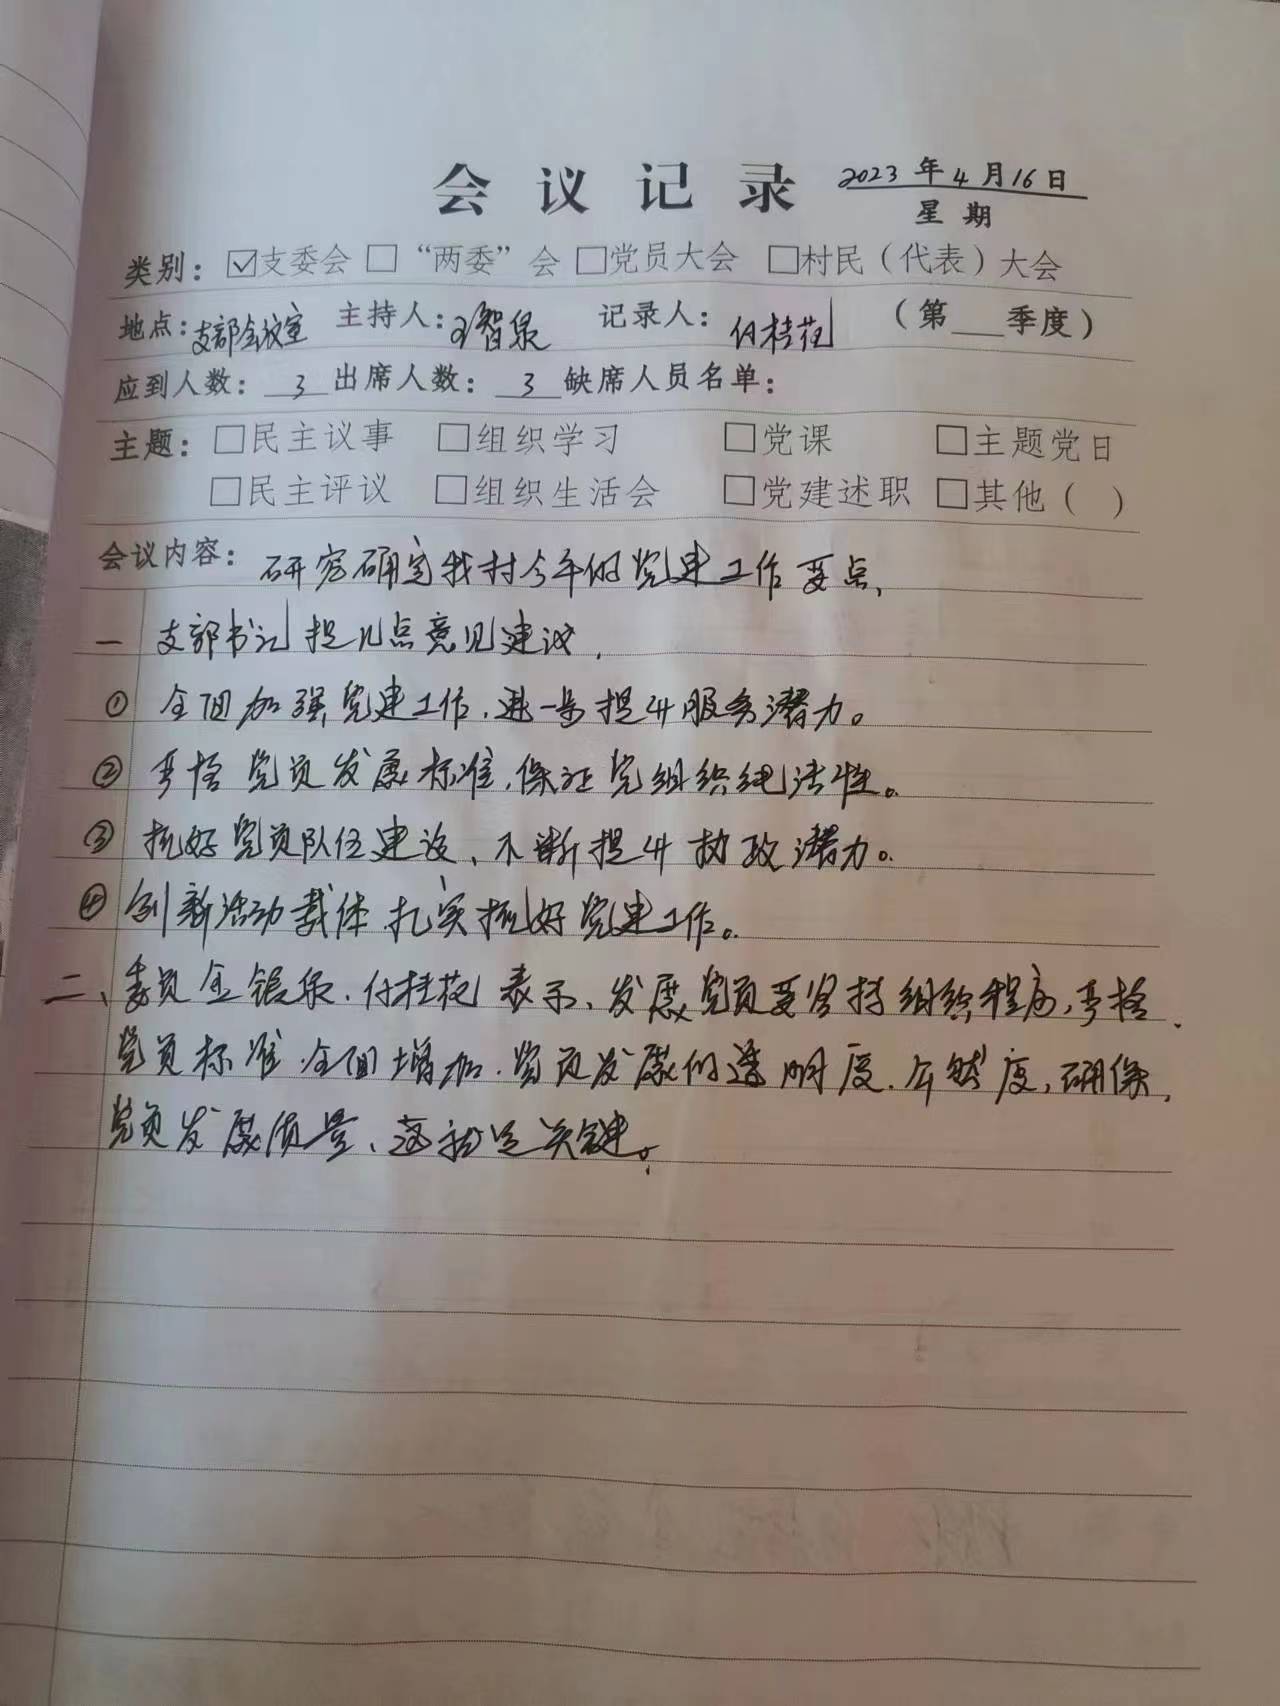 会议记录 2023年4月16日
星期
类别：☑支委会 □“两委”会 □党员大会 □村民（代表）大会
地点：支部会议室 主持人：王智泉 记录人：付桂花 （第 季度）
应到人数：3 出席人数：3 缺席人员名单：
主题：□民主议事 □组织学习 □党课 □主题党日
□民主评议 □组织生活会 □党建述职 □其他（ ）
会议内容：研究确定我村今年的党建工作要点，
一 支部书记提几点意见建议，
① 全面加强党建工作，进一步提升服务潜力。
② 严格党员发展标准，保证党组织纯洁性。
③ 抓好党员队伍建设、不断提升执政潜力。
④ 创新活动载体，扎实抓好党建工作。
二、委员金银泉、付桂花表示、发展党员要坚持组织程序，严格
党员标准，全面增加，党员发展的透明度，公然度，确保，
党员发展质量、这就是关键。